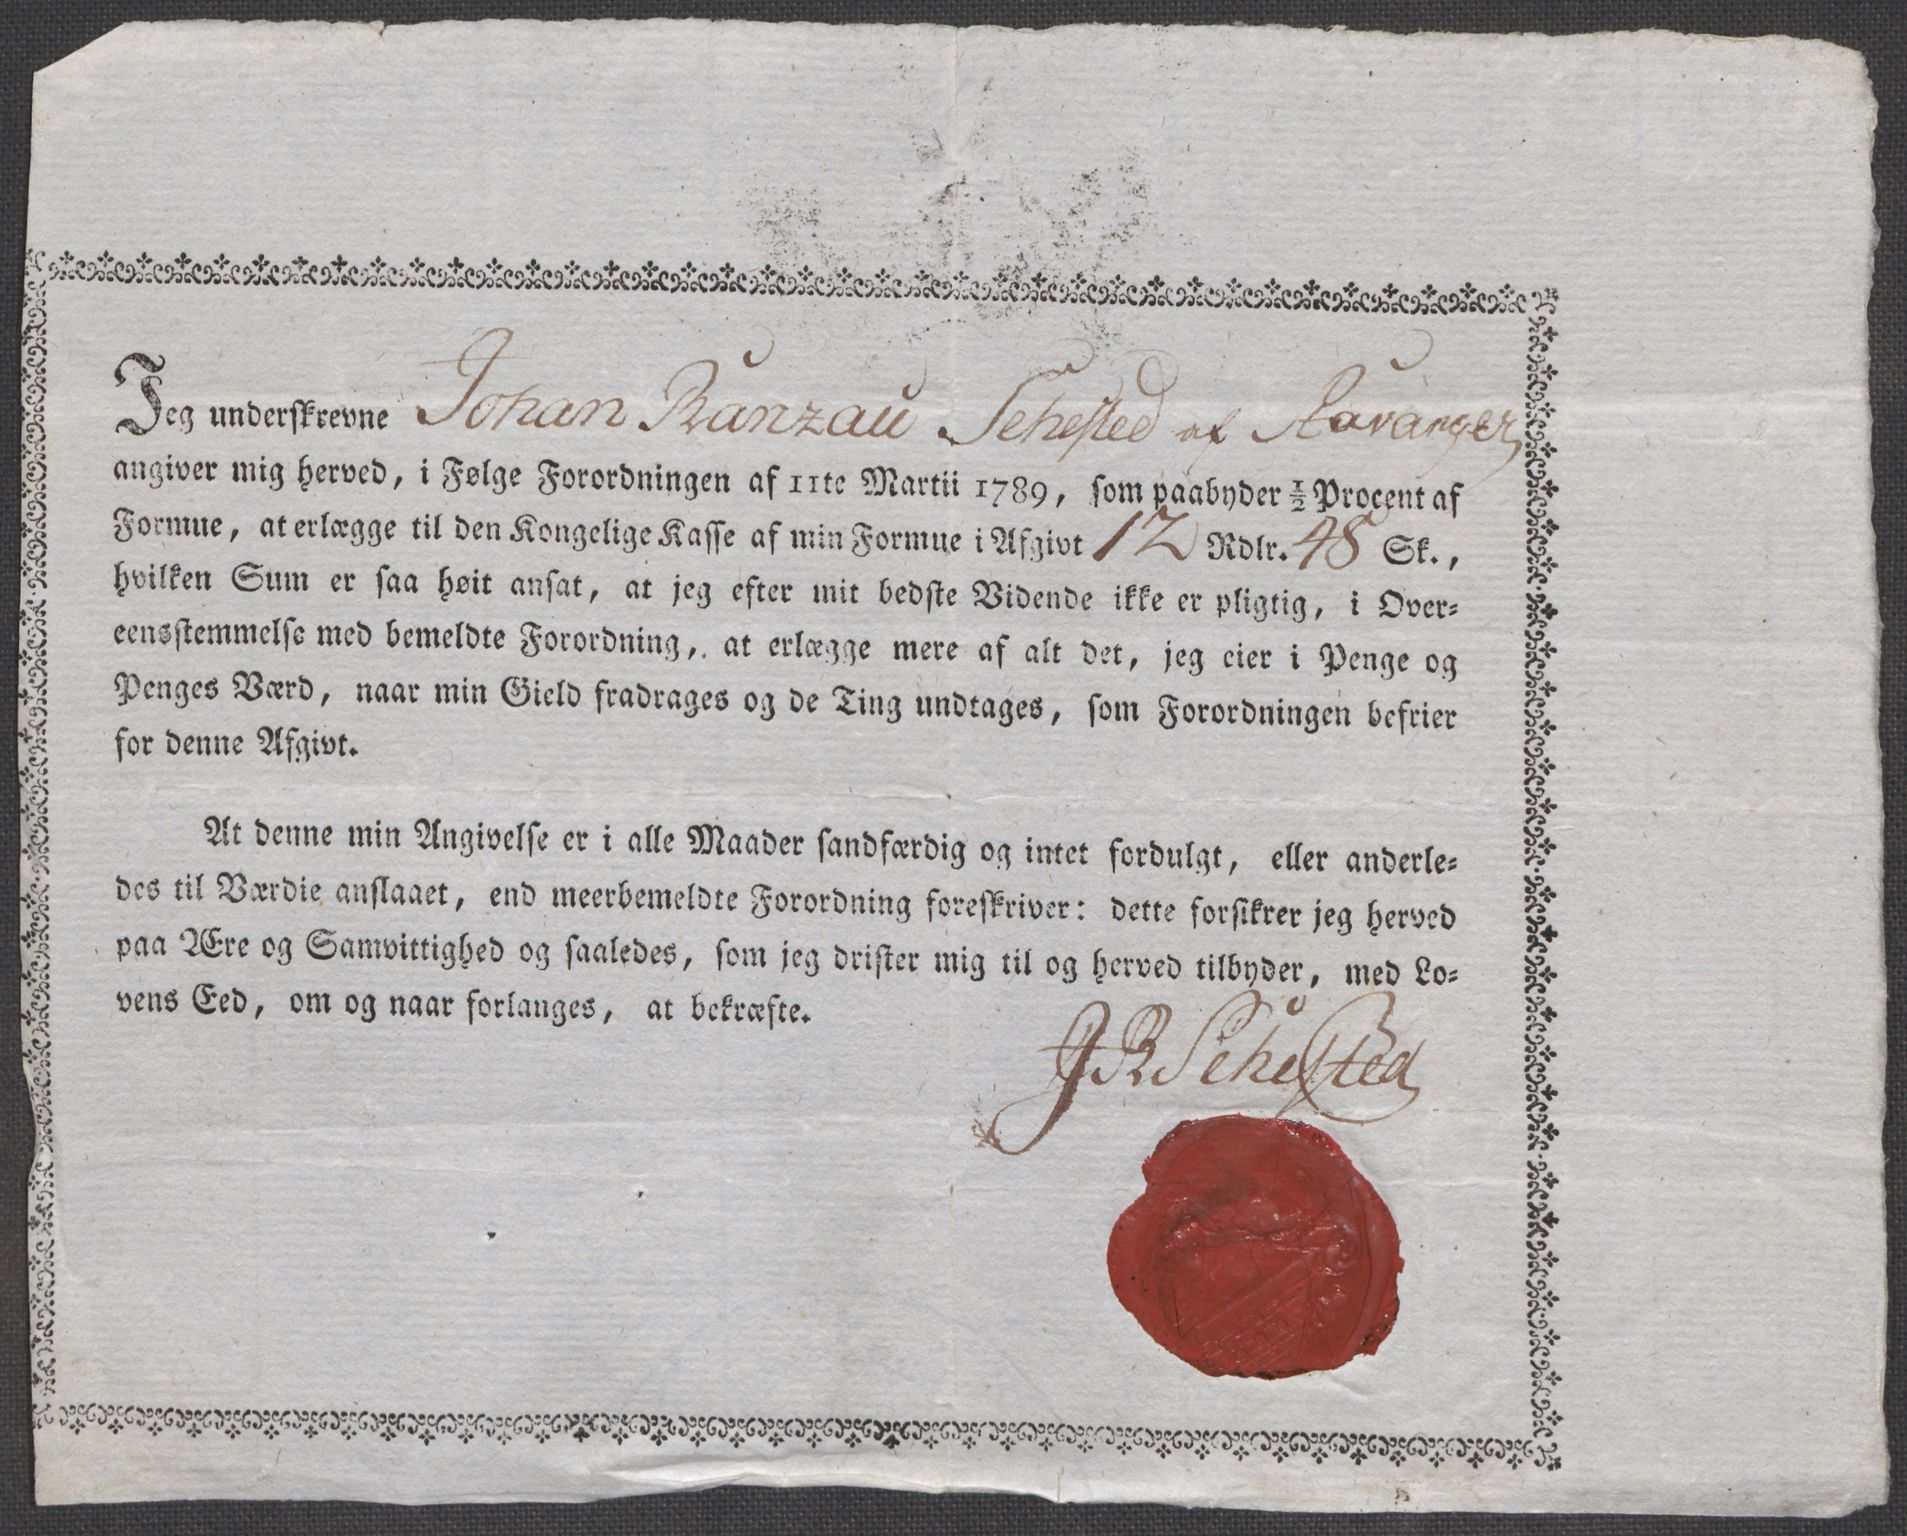 Jeg underskrevne Johan Ranzau Sehested af
angiver mig herved, i Følge Forordningen af 11te Martii 1789, som paabyder ½ Procent af
Formue, at erlægge til den Kongelige Kasse af min Formue i Afgivt 12 Rdlr. 48 Sk.,
hvilken Sum er saa høit ansat, at jeg efter mit bedste Vidende ikke er pligtig, i Over-
eensstemmelse med bemeldte Forordning, at erlægge mere af alt det, jeg eier i Penge og
Penges Værd, naar min Gield fradrages og de Ting undtages, som Forordningen befrier
for denne Afgivt.
At denne min Angivelse er i alle Maader sandfærdig og intet fordulgt, eller anderle-
des til Værdie anslaaet, end meerbemeldte Forordning foreskriver: dette forsikrer jeg herved
paa Ære og Samvittighed og saaledes, som jeg drister mig til og herved tilbyder, med Lo-
vens Eed, om og naar forlanges, at bekræfte.
J R Sehested